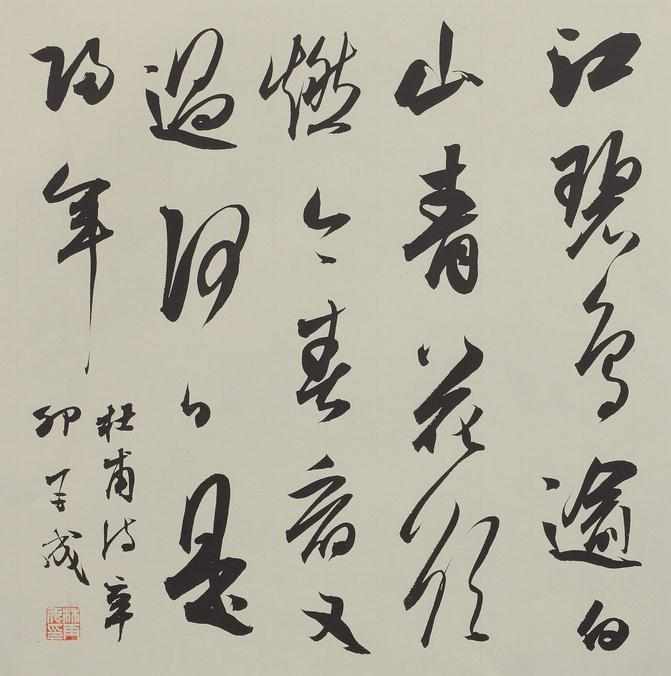 江碧鳥逾白
山青花欲
燃今春看又
過何日是
歸年
杜甫詩辛
卯 成